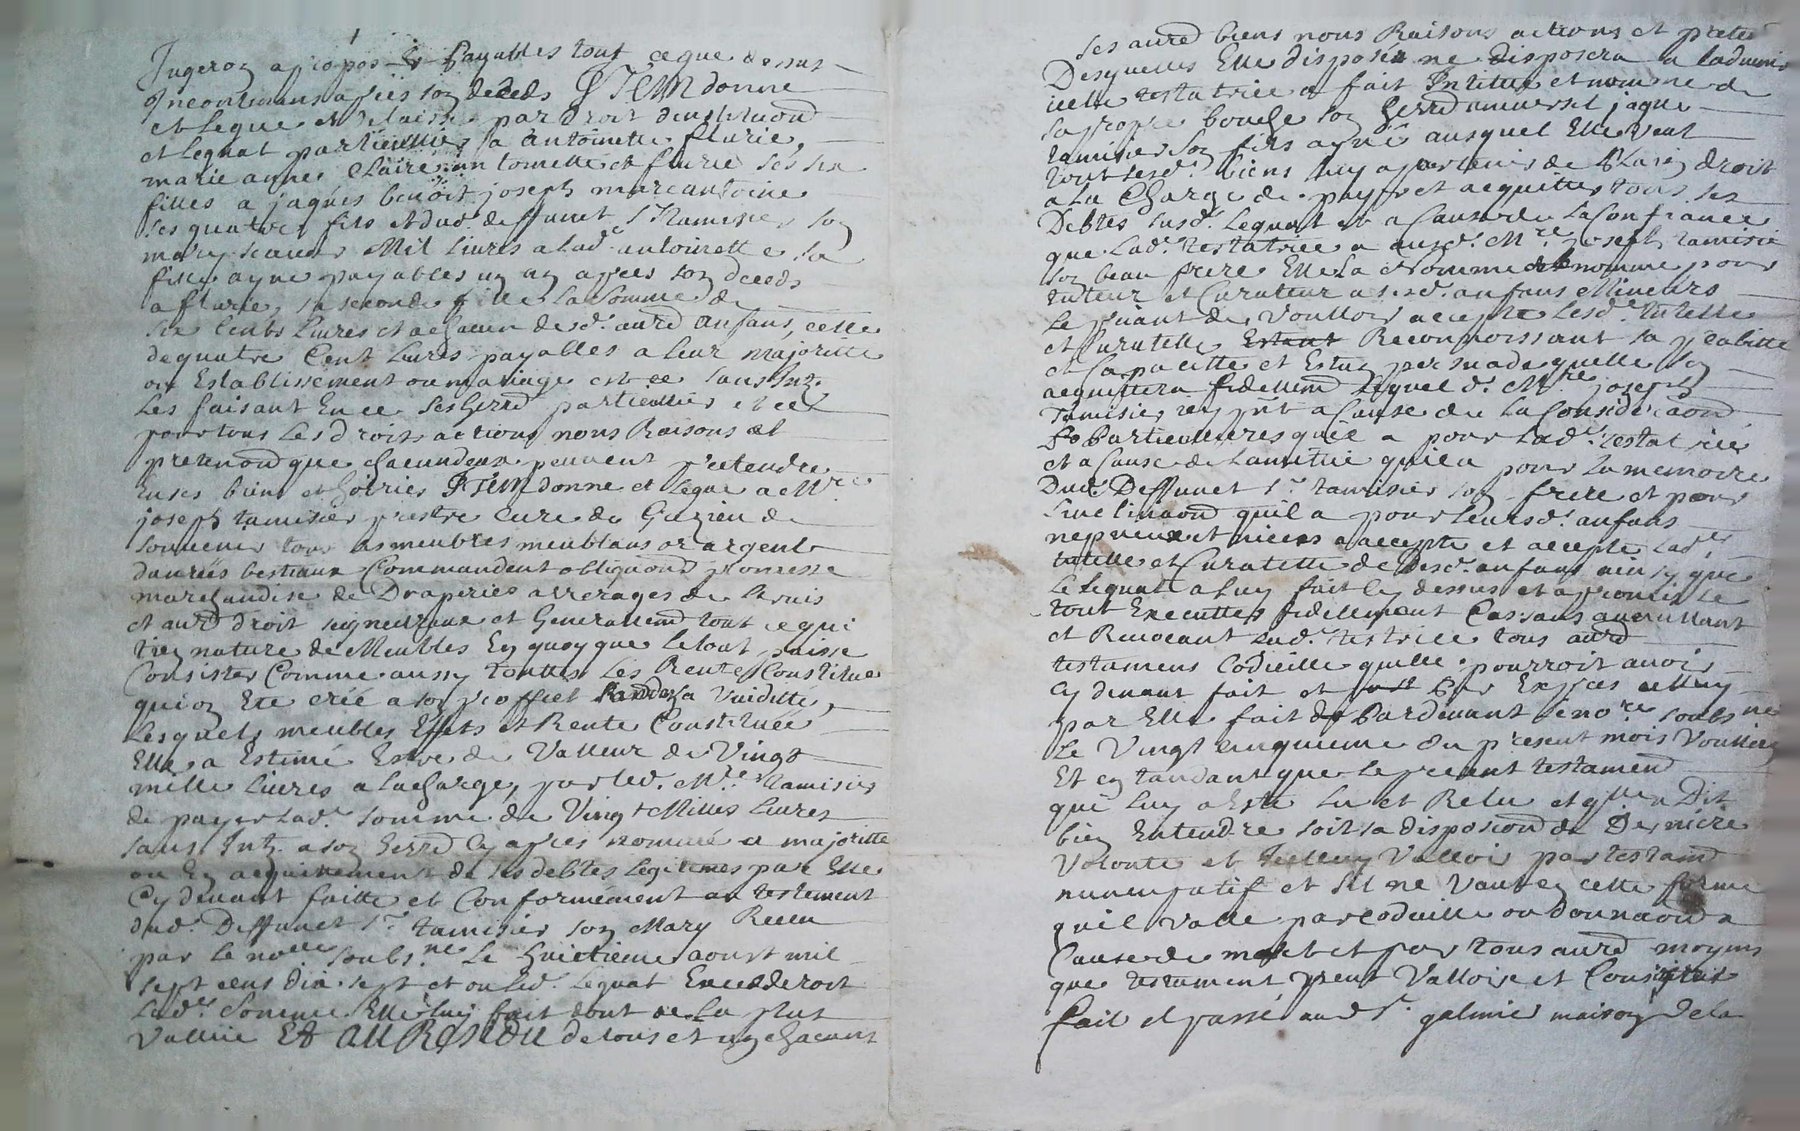 Jugeron a propos & payables tout ce que dessus
Incontinans apres son deceds ITEM donne
et legue et delaisse par droit dinstituon
et legnat particullier a antoinette flurie,
marie agnes Claire an tomette et flurie ses six
filles a jaques benoit joseph marcantoine
ses quatres fils et dud. deffunct Sr tamisier son
mary scavoir Mil livres a lade antoinette sa
fille ayne payables un an apres son deceds
a flurie, sa seconde fille La Somme de
six Cents livres et a chacun desd. autrd anfans, celle
de quatre Cent livres payables a leur majoritte
ou Establissement ou mariage et ce sans Intz.
Les faisant En ce Ses herrd particulliers et ce
pour tous les droits actions noms Raisons et
pretenond que chacundeux peuvent pretendre
En ses biens et hoiries ITEM donne et legue a Mre
joseph tamisier prestre Cure de Grezieu de
souvenir tous ses meubles meublans or argent
danrées bestiaux Commandent obligaond promesse
marchandise de Draperies arrerages de servis
et autrd droit seigneuriaux et Generallemd tout ce qui
tien nature de Meubles En quoy que le tout puisse
Consister Comme aussy touttes les Rentes Constitue
qui on Ete créé a son proffict sa Viduitté,
Lesquels meubles Effets et Rente Constituée
Elle a Estimé Estre de Valleur de Vingt
mille livres a la Charge, par led. Mre. tamisier
de payer lade. somme de Vingt Milles livres
sans Intz. a son herrd cy apres nommé a majoritte
ou En acquittement de ses debtes legitimes par Elle
Cy devant faitte et Conformément au testement
dud. Deffunct Sr. tamisier son Mary Receu
par le nore soubs.ne Le huictieme aoust mil
sept cens dix sept et ou led. legnat Excedderoit
lade. Somme Elle luy fait dont de la plus
vallüe Et AU RESIDU de tous et un chacuns
ses autrd biens noms Raisons actions et preten
Desquelles Elle disposée ne disposera a ladvenir
icelle testatrice a fait Intitue et nomme de
sa propre bouche son herrd universel jaque
tamisier son fils ayné auquel Elle veut
tout sesd. biens luy appartenir de plain droit
a la Charge de payer et acquitter tous ses
Debtes susd. legnat et a Cause de La Confiance
que lade. testatrice a aud. Mre. joseph tamisie
son beau frere Elle la nomme et nomme pour
tuteur et Curateur a sesd. anfans Mineurs
Le priant de Voulloir accepte lesd. tutelle
et Curatelle Estant Reconnoissant sa probitte
et Capacitte et Estan persuade quelle son
acquittera fidellemd Lequel d. Mre joseph
tamisier icy pnt a Cause de la Consideraond
Particullieres quil a pour lade. testatrice
et a Cause de lamittié quil a pour la memoire
Dud. Deffunct Sr. tamisier son frere et pour
linclinaond quil a pour leursd. anfans
nepveux et nieces a accepte et accepte lade.
tutelle et Curatelle de sesd. anfans ainsy que
Le legnat a luy fait Cy dessus et a promis Le
tout Executter fidellement Cassans anullant
et Revocant lade. testrice tous autrd
testamens Codicille quelle pourroit avoir
Cy devant fait et par Expres celluy
par Elle fait Pardevant le nore. soubs ne
Le Vingt cinquieme du present mois Voulliens
Et en tandant que le present testamend
qui luy a Esté lu et Relu et quelle a Dit
bien Entendre soit sa disposiond de Derniere
Volonte et Icelluy Valloir par testamd
nuncupatif et sil ne Vaut en cette forme
quil vaille par codicille ou donnaond a
Cause de mort et par tous autrd moyens
que testament peut Valloire et Consister
fait et passé aud Sr. galmier maison de la